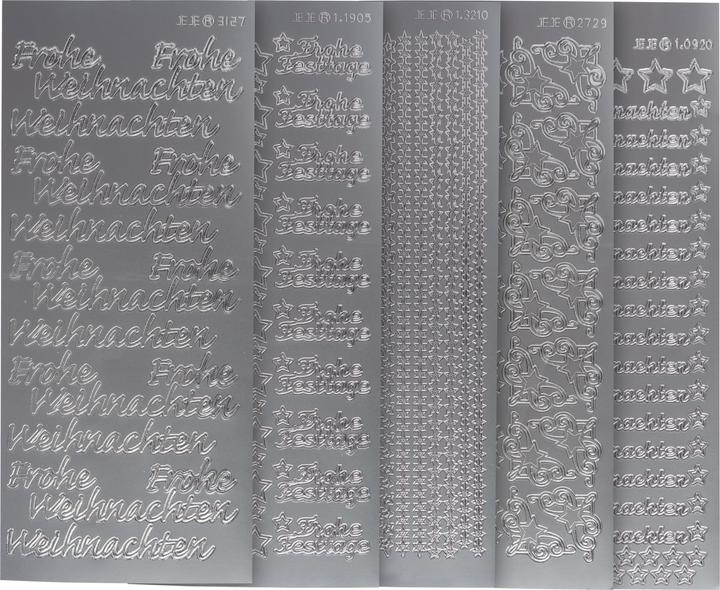 JEJE ® 3157
Frohe Frohe
Weihnachten
Weihnachten
Frohe Frohe
Weihnachten
Weihnachten
Frohe Frohe
Weihnachten
Weihnachten
Frohe Frohe
Weihnachten
Weihnachten
Frohe Frohe
Weihnachten
Weihnachten
JEJE ® 1.1905
Frohe
Festtage
Frohe
Festtage
Frohe
Festtage
Frohe
Festtage
Frohe
Festtage
Frohe
Festtage
Frohe
Festtage
Frohe
Festtage
Frohe
Festtage
Frohe
Festtage
JEJE ® 1.3210
JEJE ® 2729
JEJE ® 1.0920
nachten
nachten
nachten
nachten
nachten
nachten
nachten
nachten
nachten
nachten
nachten
nachten
nachten
nachten
nachten
nachten